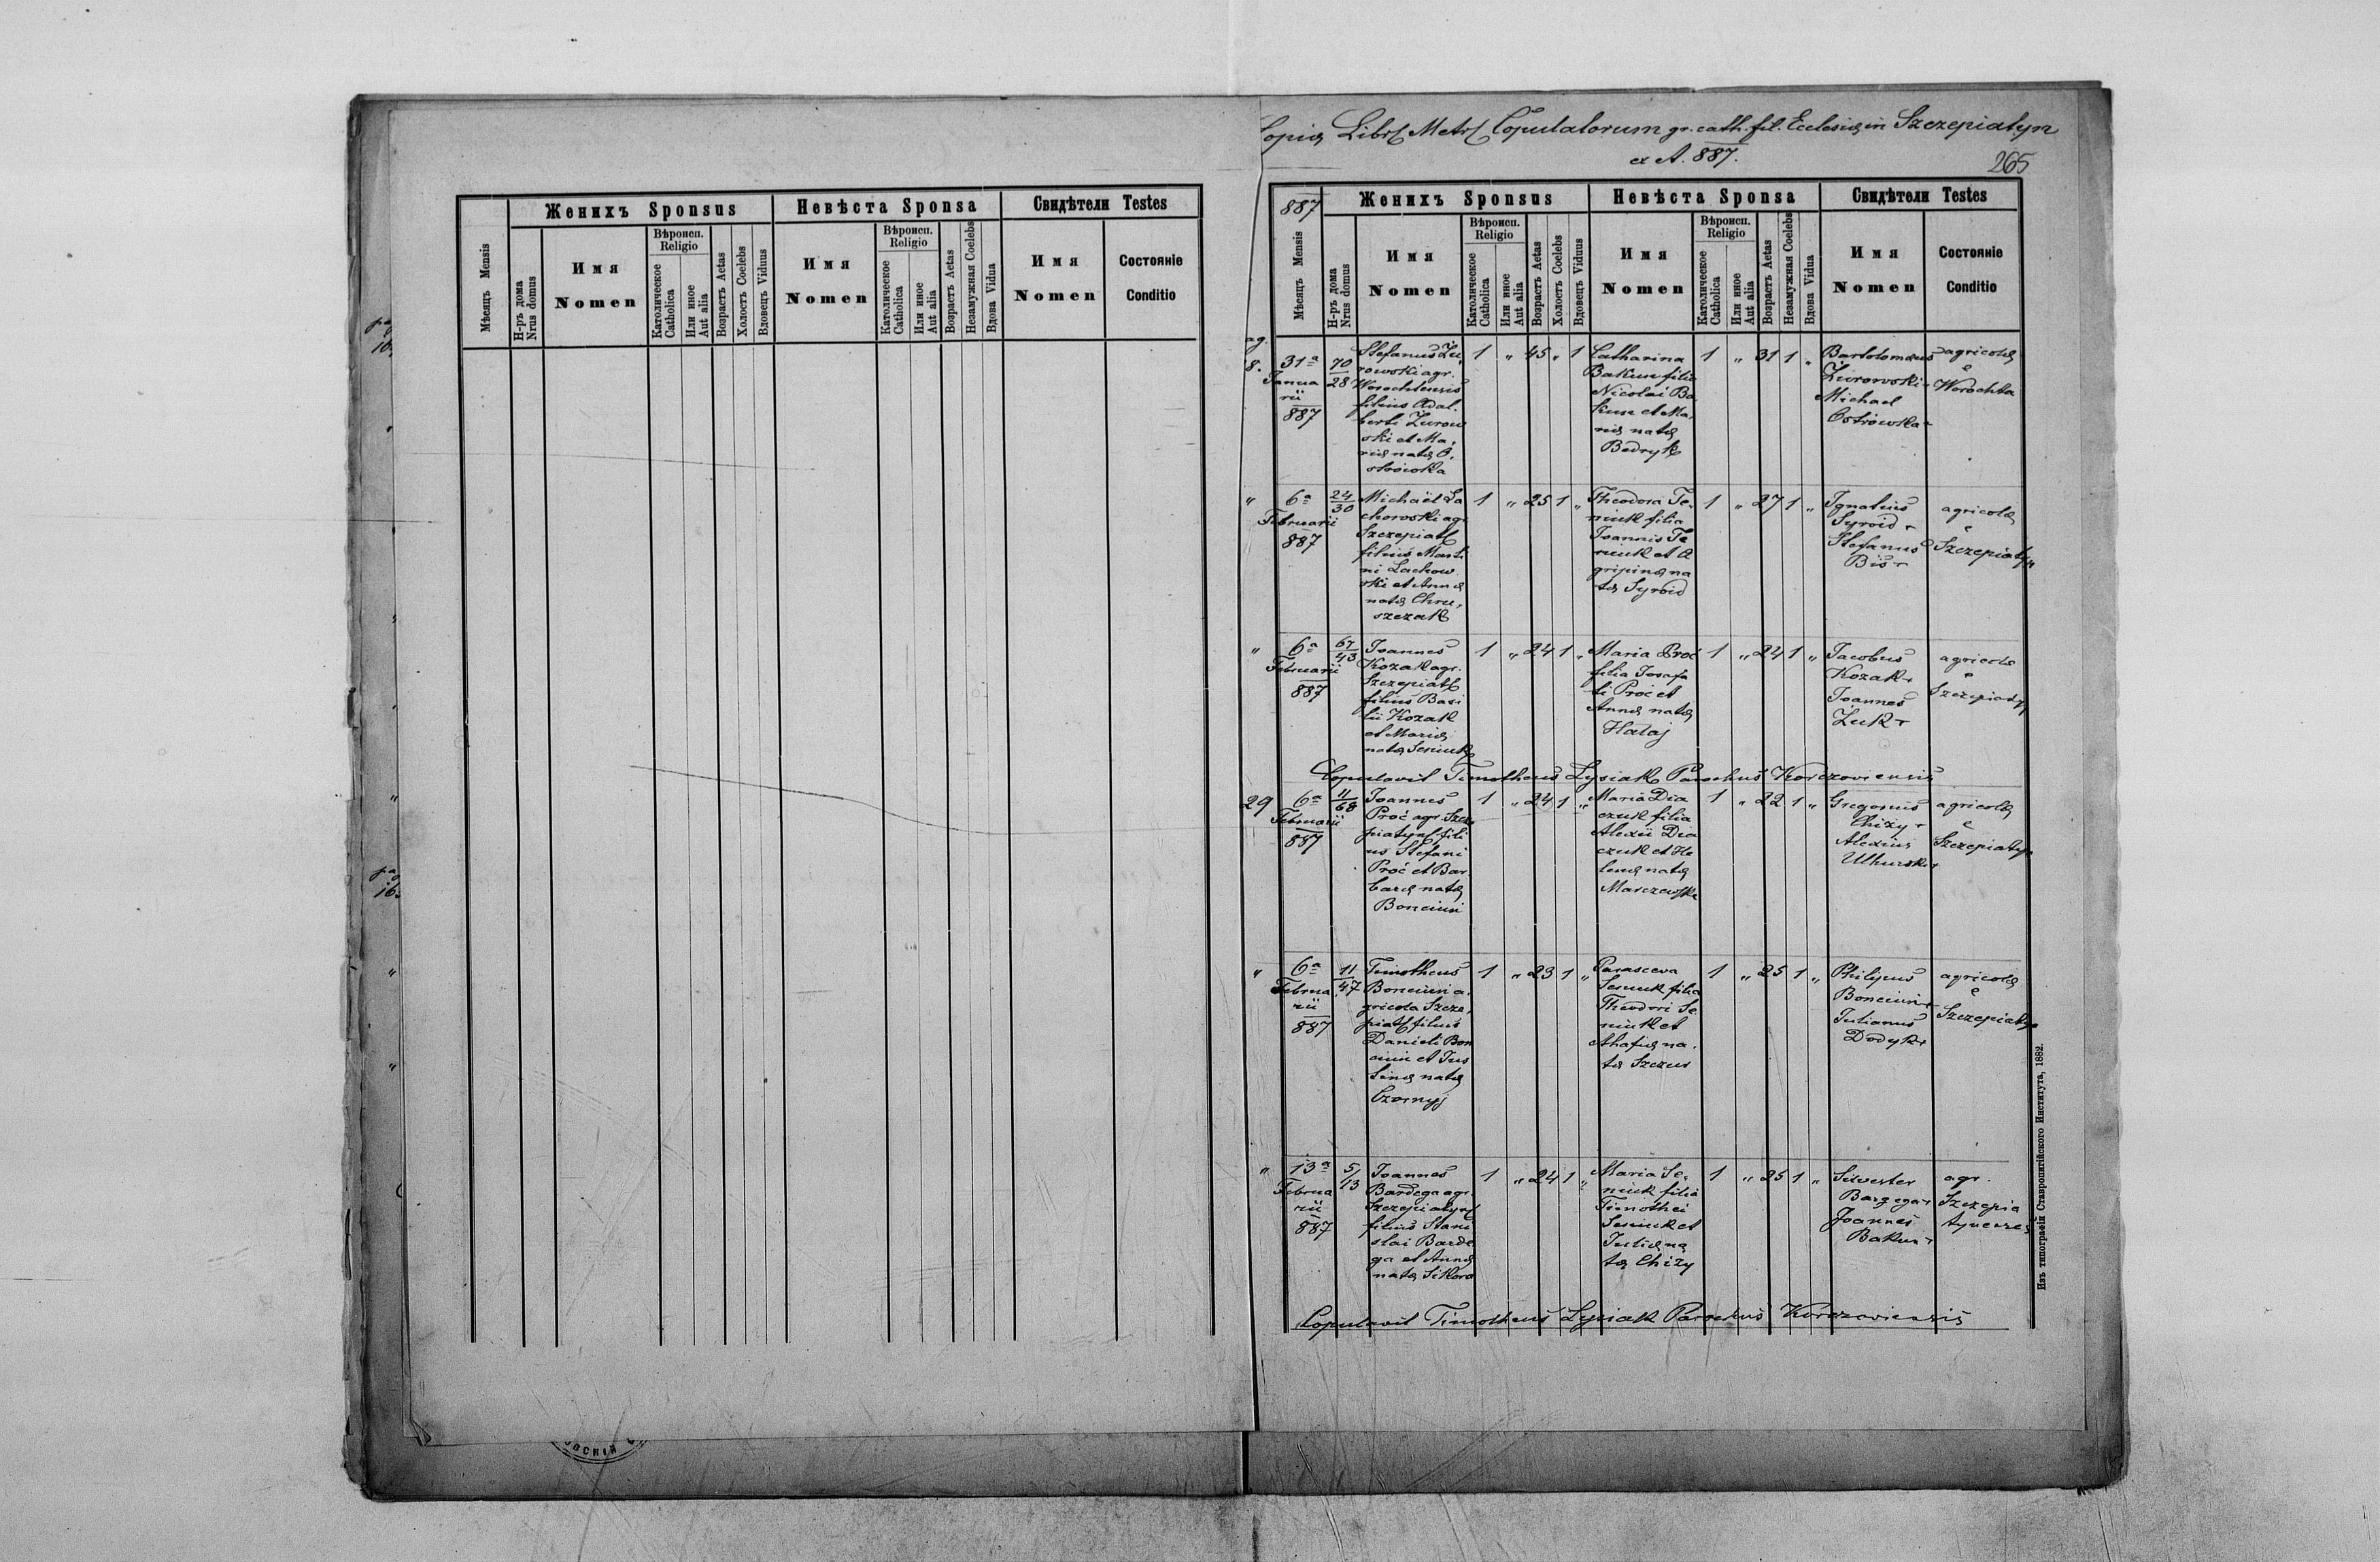 Copia Libri Metr. Copulatorum gr. cath. fil. Ecclesiæ in Szczepiatyn
ex A. 887.
265
Женихъ Sponsus
Невѣста Sponsa
Свидѣтели Testes
Мѣсяцъ Mensis
Н-ръ дома
Nrus domus
Имя
Nomen
Вѣроисп.
Religio
Католическое
Catholica
Или иное
Aut alia
Возрастъ Aetas
Холостъ Coelebs
Вдовецъ Viduus
Имя
Nomen
Вѣроисп.
Religio
Католическое
Catholica
Или иное
Aut alia
Возрастъ Aetas
Незамужная Coelebs
Вдова Vidua
Имя
Nomen
Состояніе
Conditio
887
Женихъ Sponsus
Невѣста Sponsa
Свидѣтели Testes
Мѣсяцъ Mensis
Н-ръ дома
Nrus domus
Имя
Nomen
Вѣроисп.
Religio
Католическое
Catholica
Или иное
Aut alia
Возрастъ Aetas
Холостъ Coelebs
Вдовецъ Viduus
Имя
Nomen
Вѣроисп.
Religio
Католическое
Catholica
Или иное
Aut alia
Возрастъ Aetas
Незамужная Coelebs
Вдова Vidua
Имя
Nomen
Состояніе
Conditio
31a
Janua
rii
887
70
28
Stefanus Żu
rowski agr.
Worochtensis
filius Adal
berti Żurow
ski et Ma
riæ natæ O
strówska
1 " 45 " 1
Catharina
Bakun filia
Nicolai Ba
kun et Ma
riæ natæ
Bedryk
1 " 31 1 "
Bartolomæus
Żurowski +
Michael
Ostrowska +
agricolæ
e
Worochta
" 6a
Februarii
887
24
30
Michaël La
chowski agr.
Szczepiat
filius Marti
ni Lachow
ski et Annæ
natæ Chru
szczak
1 " 25 1 "
Theodora Se
niuk filia
Joannis Se
niuk et A
gripinæ na
tæ Syroid
1 " 27 1 "
Ignatius
Syroid +
Stefanus
Biś +
agricolæ
e
Szczepiatyn
" 6a
Februarii
887
67
43
Joannes
Kozak agr.
Szczepiat
filius Basi
lii Kozak
et Mariæ
natæ Seniuk
1 " 24 1 "
Maria Proć
filia Josafa
ti Proć et
Annæ natæ
Hałaj
1 " 24 1 "
Jacobus
Kozak +
Joannes
Żuk +
agricolæ
e
Szczepiatyn
Copulavit Timotheus Łysiak Parochus Korczoviensis
29 6a
Februarii
887
11
68
Joannes
Proć agr. Szcze
piatyn fili
us Stefani
Proć et Bar
baræ natæ
Bonciun
1 " 24 1 "
Maria Dia
czuk filia
Alexii Dia
czuk et He
lenæ natæ
1 " 22 1 "
Gregorius
Chizy +
Alexius
agricolæ
e
Szczepiatyn
" 6a
Februa
rii
887
11
47
Timotheus
Bonciun a
gricola Szcze
piat filius
Danieli Bon
ciun et Jus
tinæ natæ
Czornyj
1 " 23 1 "
Parasceva
Seniuk filia
Theodori Se
niuk et
Ahafiæ na
tæ Szczur
1 " 25 1 "
Philipus
Bonciun +
Julianus
Dodyk +
agricolæ
e
Szczepiatyn
" 13a
Februa
rii
887
5
13
Joannes
Bardega agr.
Szczepiatyn
filius Stani
slai Barde
ga et Annæ
natæ Sikora
1 " 24 1 "
Maria Se
niuk filia
Timothei
Seniuk et
Juliæ na
tæ Chizy
1 " 25 1 "
Silvester
Bardega +
Joannes
Bakun +
agr.
Szczepia
tynenses
Copulavit Timotheus Łysiak Parochus Korczoviensis
Изъ типографіи Ставропигійского Института, 1882.